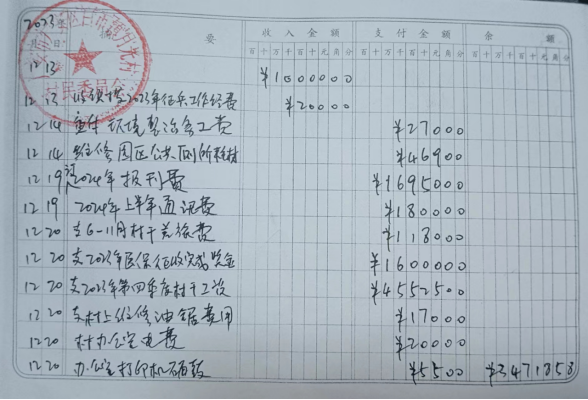 2023年 要 收入金额 支付金额 余额
月 日 百十万千百十元角分 百十万千百十元角分 百十万千百十元角分
村民委员会
12 13 ¥1000000
12 13 2023年征兵工作经费 ¥20000
12 14 环境整治务工费 ¥27000
12 14 维修园区公共厕所耗材 ¥46900
12 19 2024年报刊费 ¥1695000
12 19 2024年上半年通讯费 ¥180000
12 20 支6-11月村干差旅费 ¥118000
12 20 支2023年医保征收完成奖金 ¥1600000
12 20 支2023年第四季度村干工资 ¥4552500
12 20 支村上维修油锯费用 ¥17000
12 20 村办公室电费 ¥20000
12 20 办公室打印机硒鼓 ¥5500 ¥3471858